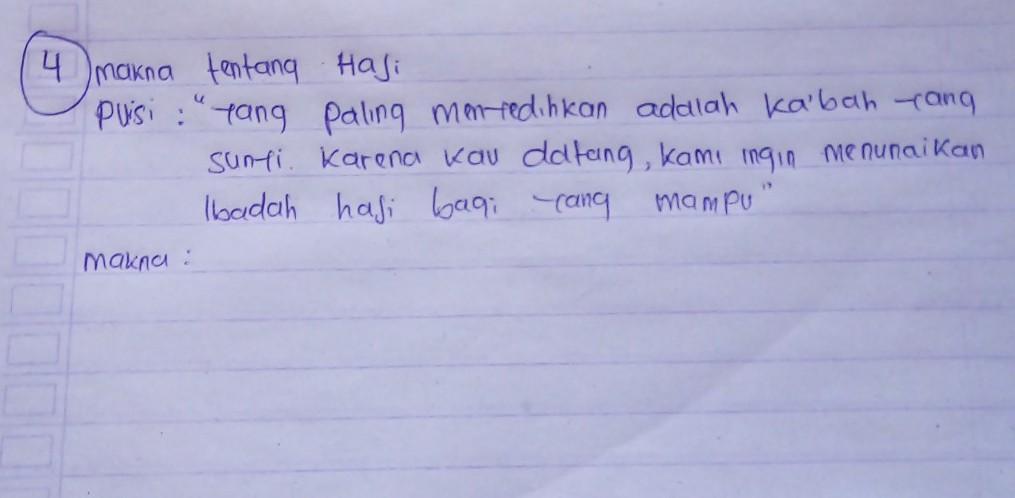 4 makna tentang Haji
puisi : "yang paling menyedihkan adalah ka'bah yang
sunyi. Karena kau datang, kami ingin menunaikan
Ibadah haji bagi yang mampu"
makna :